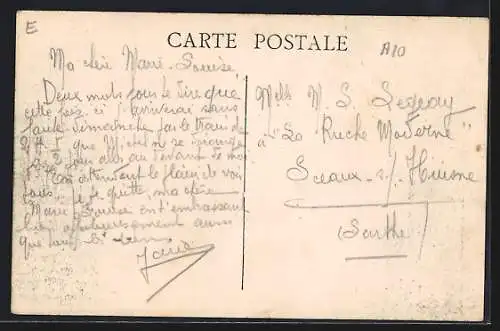 E
CARTE POSTALE
A10
Ma chère Marie-Louise,
Deux mots pour te dire que
cette fois ci j'arriverai sans
faute dimanche par le train de
que Michel ne se dérange
pas au devant de moi
En attendant le plaisir de vous
je te quitte, ma chère
Marie Louise en t'embrassant
bien affectueusement ainsi
que
Melle M. L.
"La Ruche Moderne"
Sceaux-s/-Huisne
Sarthe